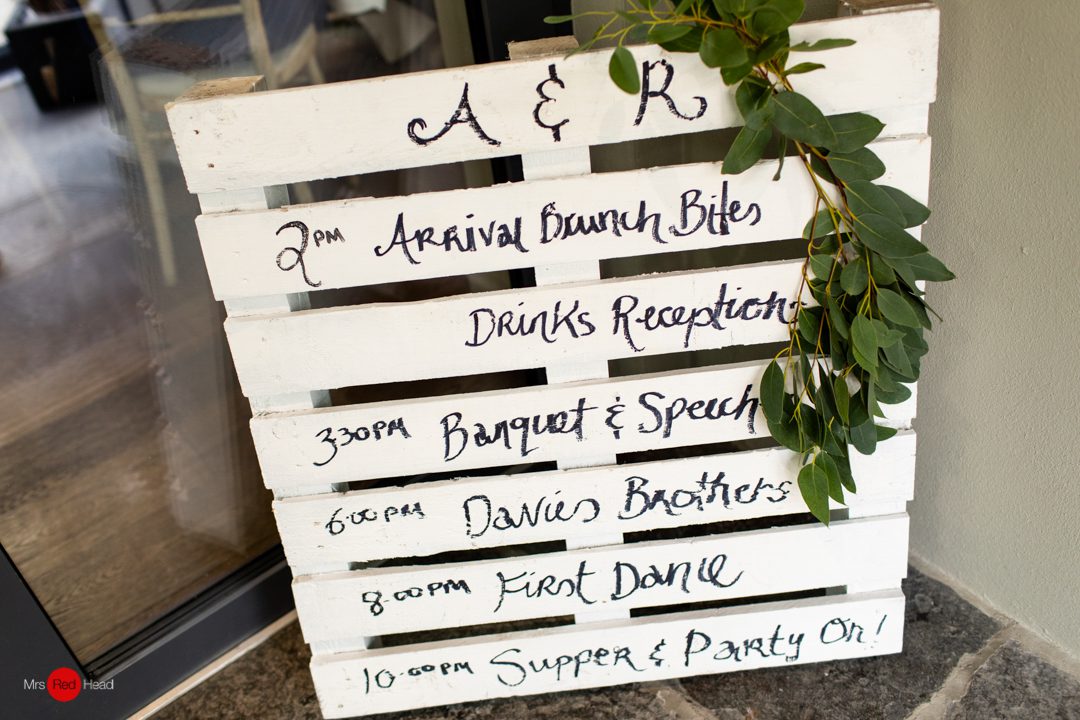 A & R
2PM Arrival Brunch Bites
Drinks Reception
3.30PM Banquet & Speech
6.00PM Davies Brothers
8.00PM First Dance
10.00PM Supper & Party On!
Mrs Red Head